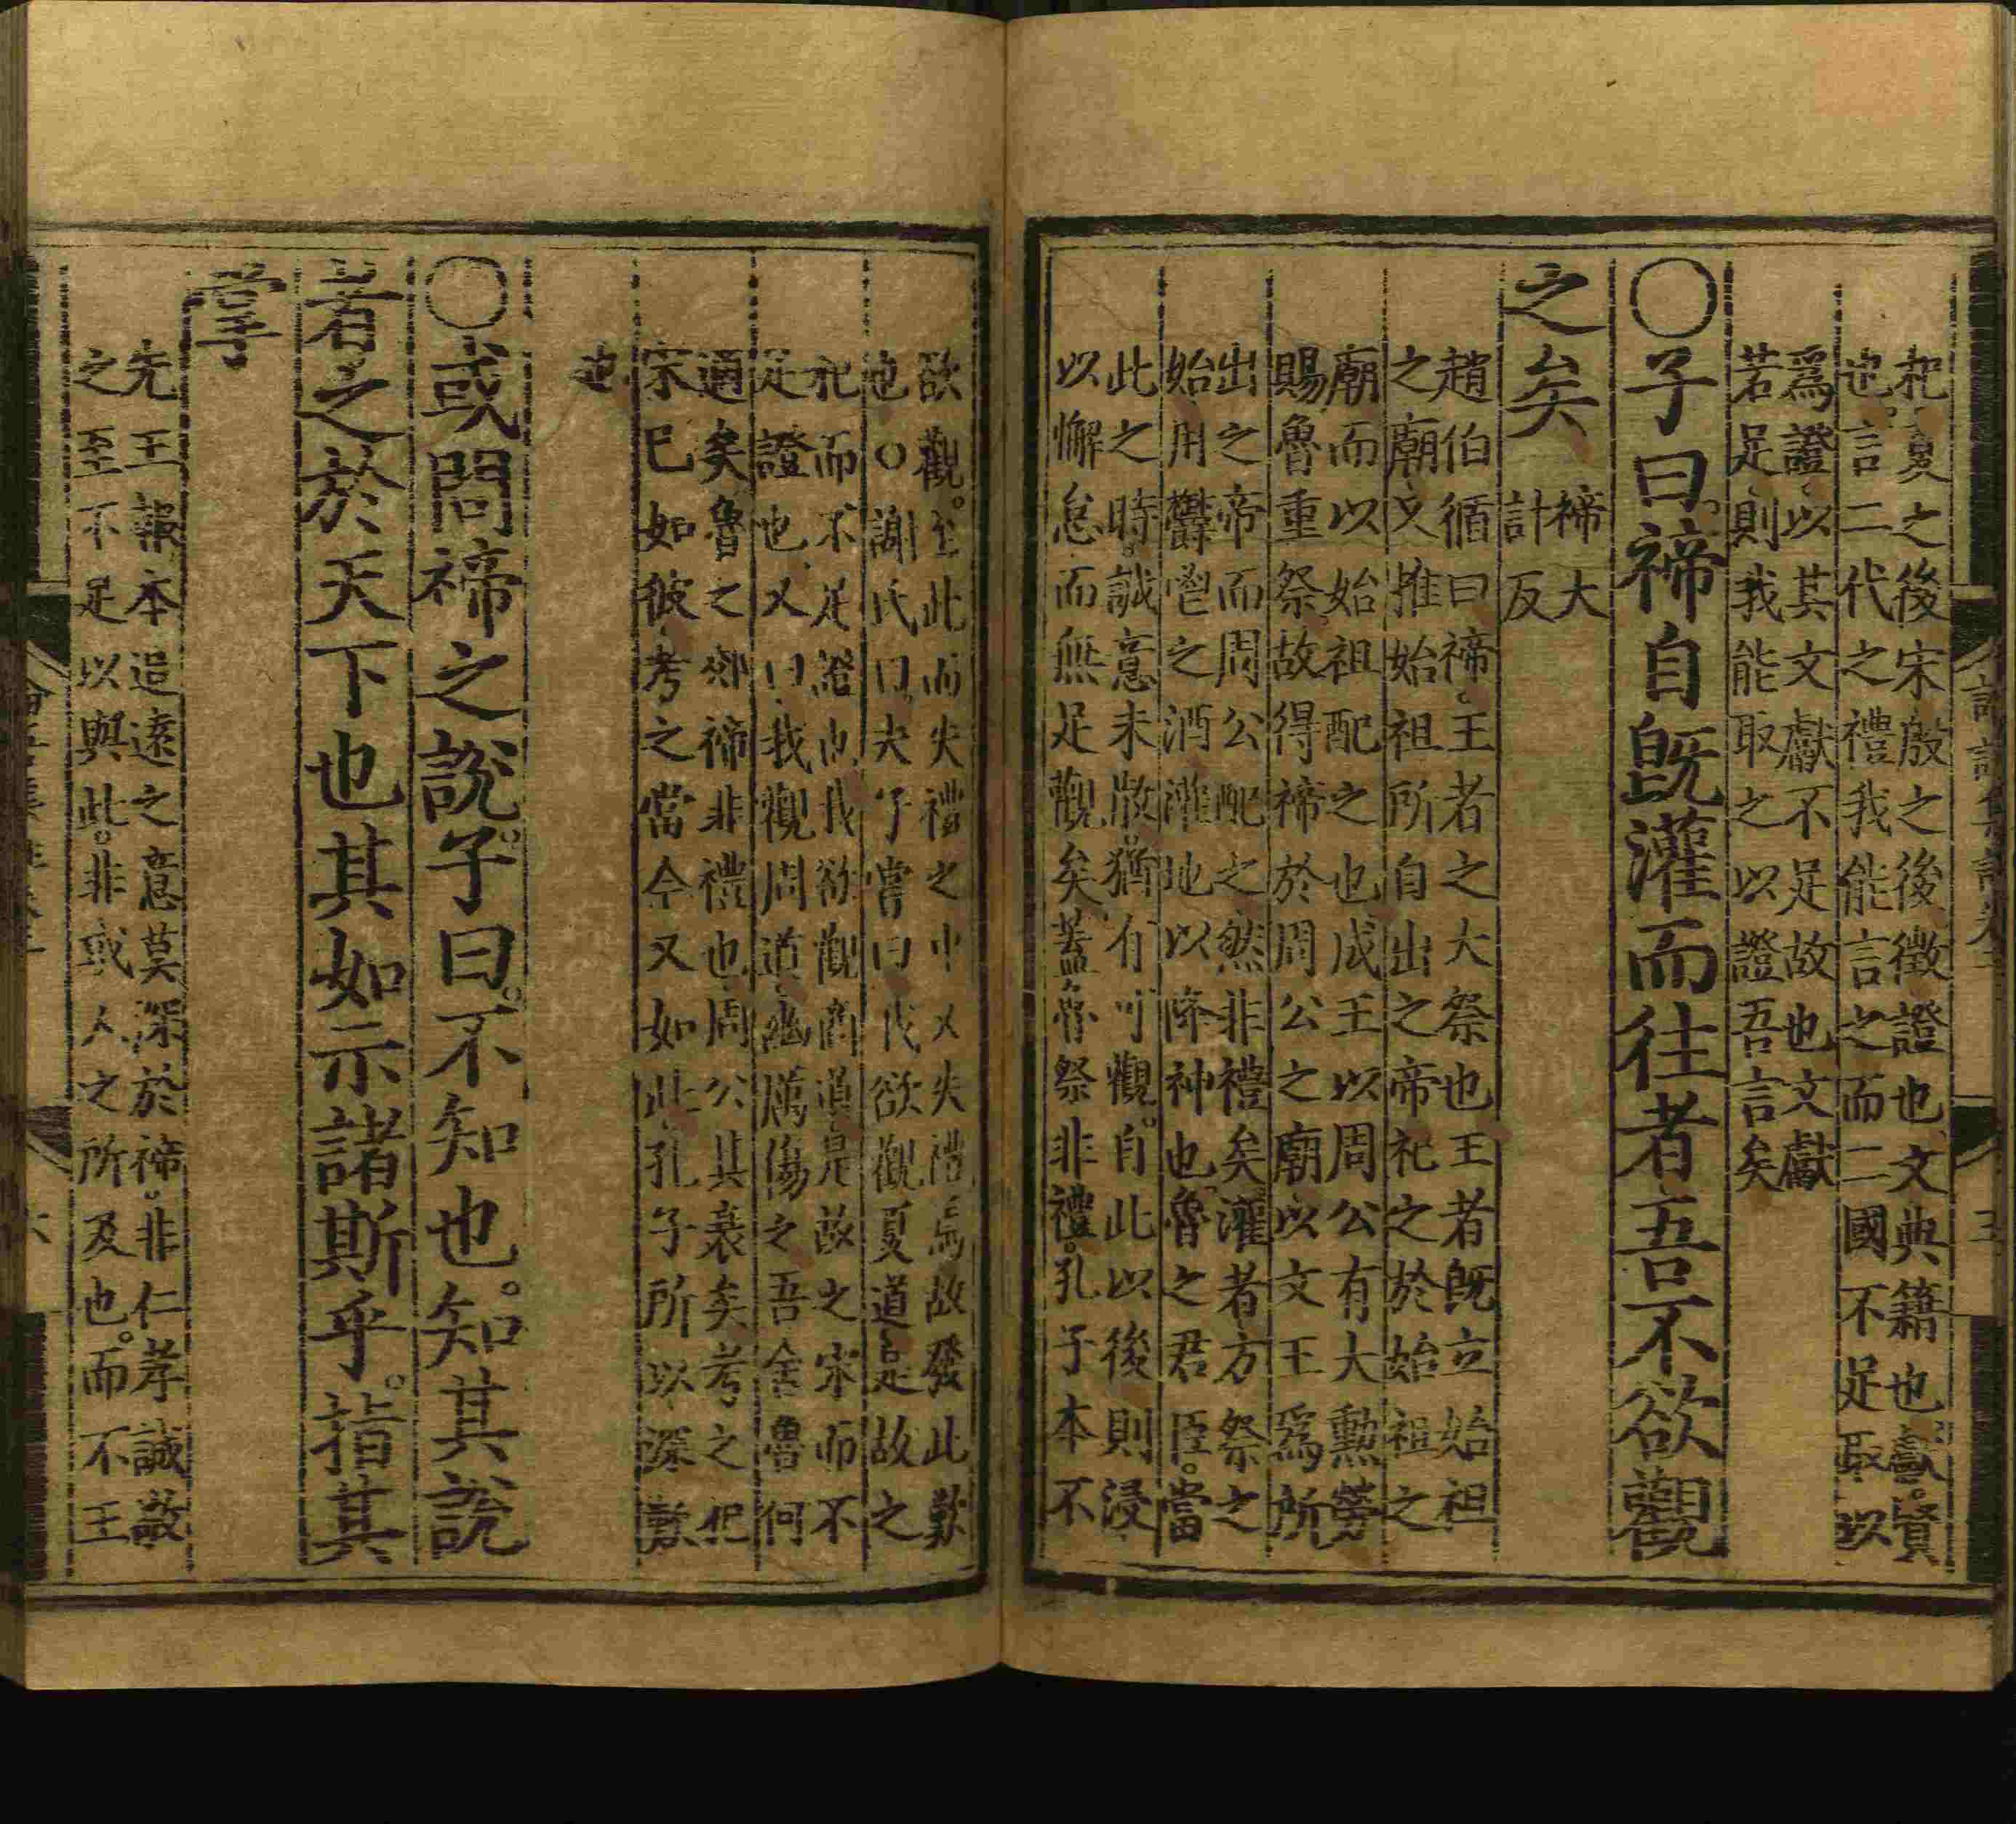 杞夏之後宋殷之後徵證也文典籍也獻賢
也言二代之禮我能言之而二國不足取以
爲證以其文獻不足故也文獻
若足則我能取之以證吾言矣
○子曰禘自旣灌而往者吾不欲觀
之矣
禘大
計反
趙伯循曰禘王者之大祭也王者旣立始祖
之廟又推始祖所自出之帝祀之於始祖之
廟而以始祖配之也成王以周公有大勲勞
賜魯重祭故得禘於周公之廟以文王爲所
出之帝而周公配之然非禮矣灌者方祭之
始用鬱鬯之酒灌地以降神也魯之君臣當
此之時誠意未散猶有可觀自此以後則浸
以懈怠而無足觀矣蓋魯祭非禮孔子本不
欲觀至此而失禮之中又失禮焉故發此歎
也○謝氏曰夫子嘗曰我欲觀夏道是故之
杞而不足證也我欲觀商道是故之宋而不
足證也又曰我觀周道幽厲傷之吾舍魯何
適矣魯之郊禘非禮也周公其衰矣考之杞
宋已如彼考之當今又如此孔子所以深歎
也
○或問禘之說子曰不知也知其說
者之於天下也其如示諸斯乎指其
掌
先王報本追遠之意莫深於禘非仁孝誠敬
之至不足以與此非或人之所及也而不王